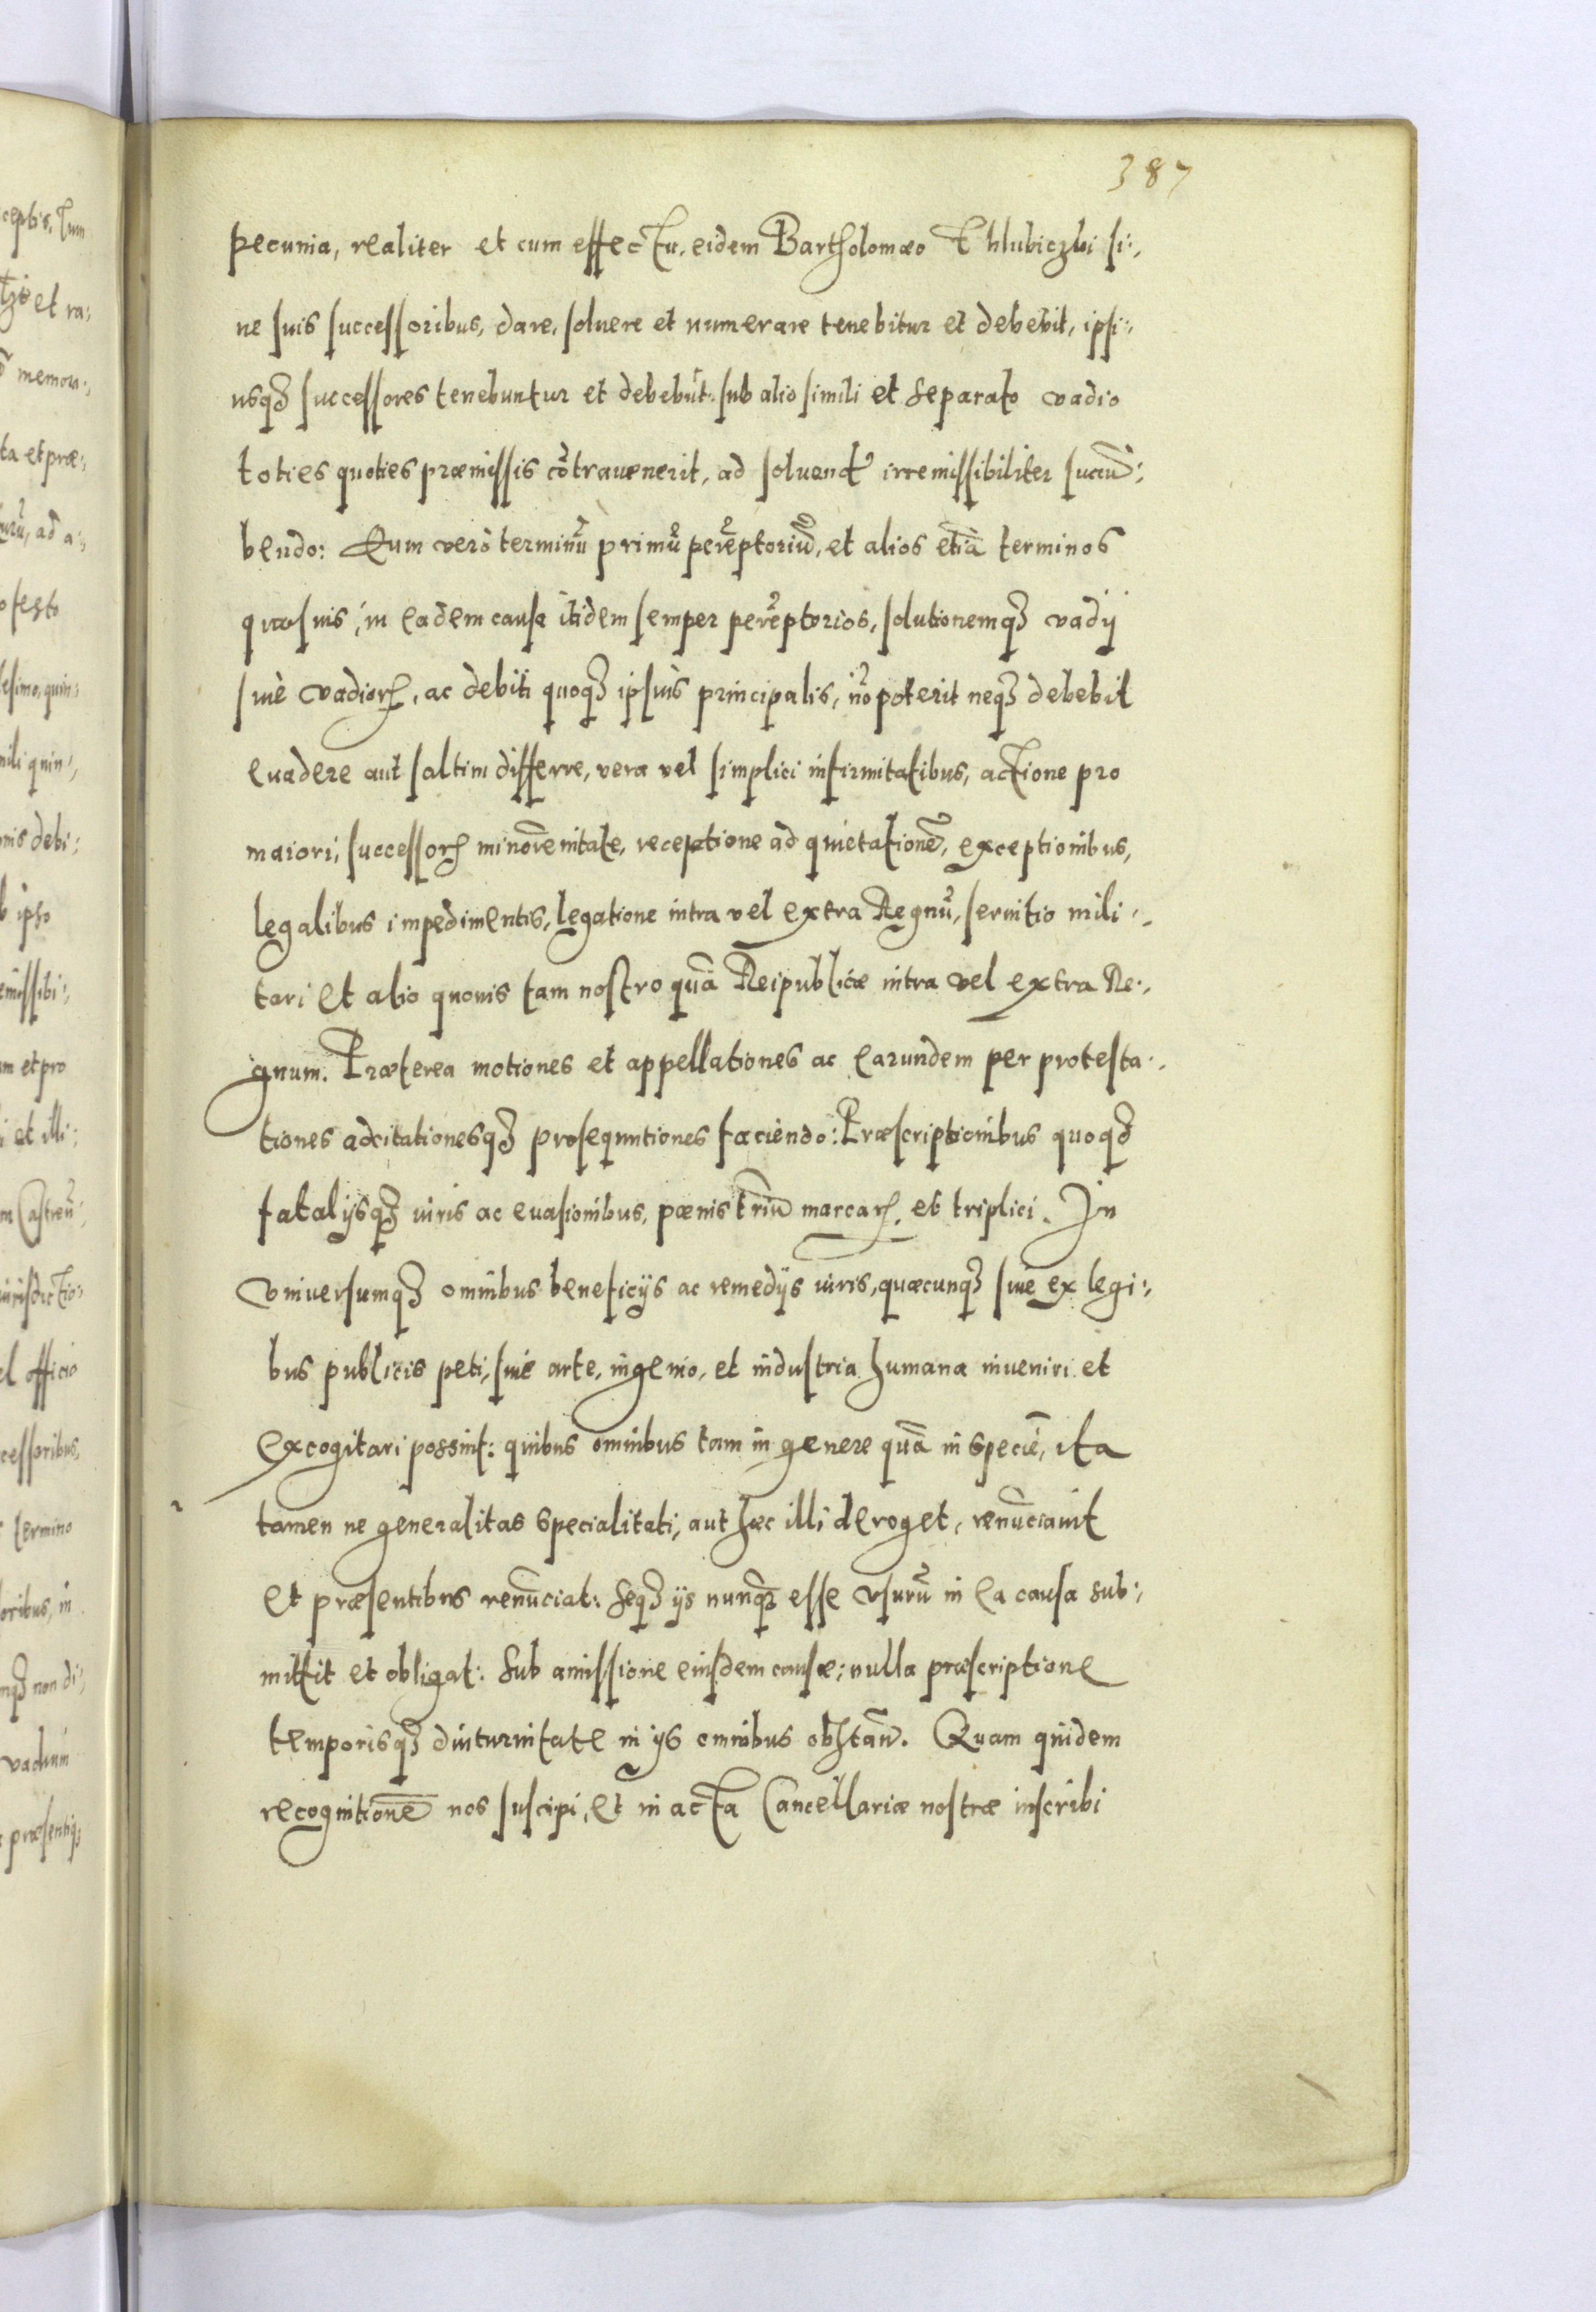 387
pecunia, realiter et cum effectu, eidem Bartholomæo Chlubiczki si:,
ne suis successoribus, dare, soluere et numerare tenebitur et debebit, ipsi:,
usq3 successores tenebuntur et debebūt: sub alio simili et separato vadio
toties quoties præmissis cōtrauenerit, ad soluend irremissibiliter succū:,
bendo: Eum verò terminū primū perēptoriū, et alios etiā terminos
quosuis, in eadem causa itidem semper perēptorios, solutionemq3 vadij
siuè vadior, ac debiti quoq3 ipsius principalis, nō poterit neq3 debebit
euadere aut saltim differre, vera vel simplici infirmitatibus, actione pro
maiori, successor minorēnitate, receptione ad quietationē, exceptionibus,
legalibus impedimentis, legatione intra vel extra Regnū, seruitio mili:,
tari et alio quouis tam nostro quā Reipublicæ intra vel extra Re:,
gnum. Præterea motiones et appellationes ac earundem per protesta:,
tiones adcitationesq3 prosequutiones faciendo: Præscriptionibus quoq3
fatalijsq3 iuris ac euasionibus, pœnis triū marcar, et triplici. In
vniuersumq3 omnibus beneficijs ac remedijs iuris, quæcunq3 siuè ex legi:,
bus publicis peti, siuè arte, ingenio, et industria humana inueniri et
excogitari possint: quibus omnibus tam in genere quā in speciē, ita
tamen ne generalitas specialitati, aut hæc illi deroget, renūciauit
et præsentibus renūciat: seq3 ijs nunq̄ esse vsurū in ea causa sub:,
mittit et obligat: sub amissione eiusdem causæ; nulla præscriptione
temporisq3 diuturnitate in ijs omnibus obstan̄. Quam quidem
recognitionē nos suscipi, et in acta Cancellariæ nostræ inscribi